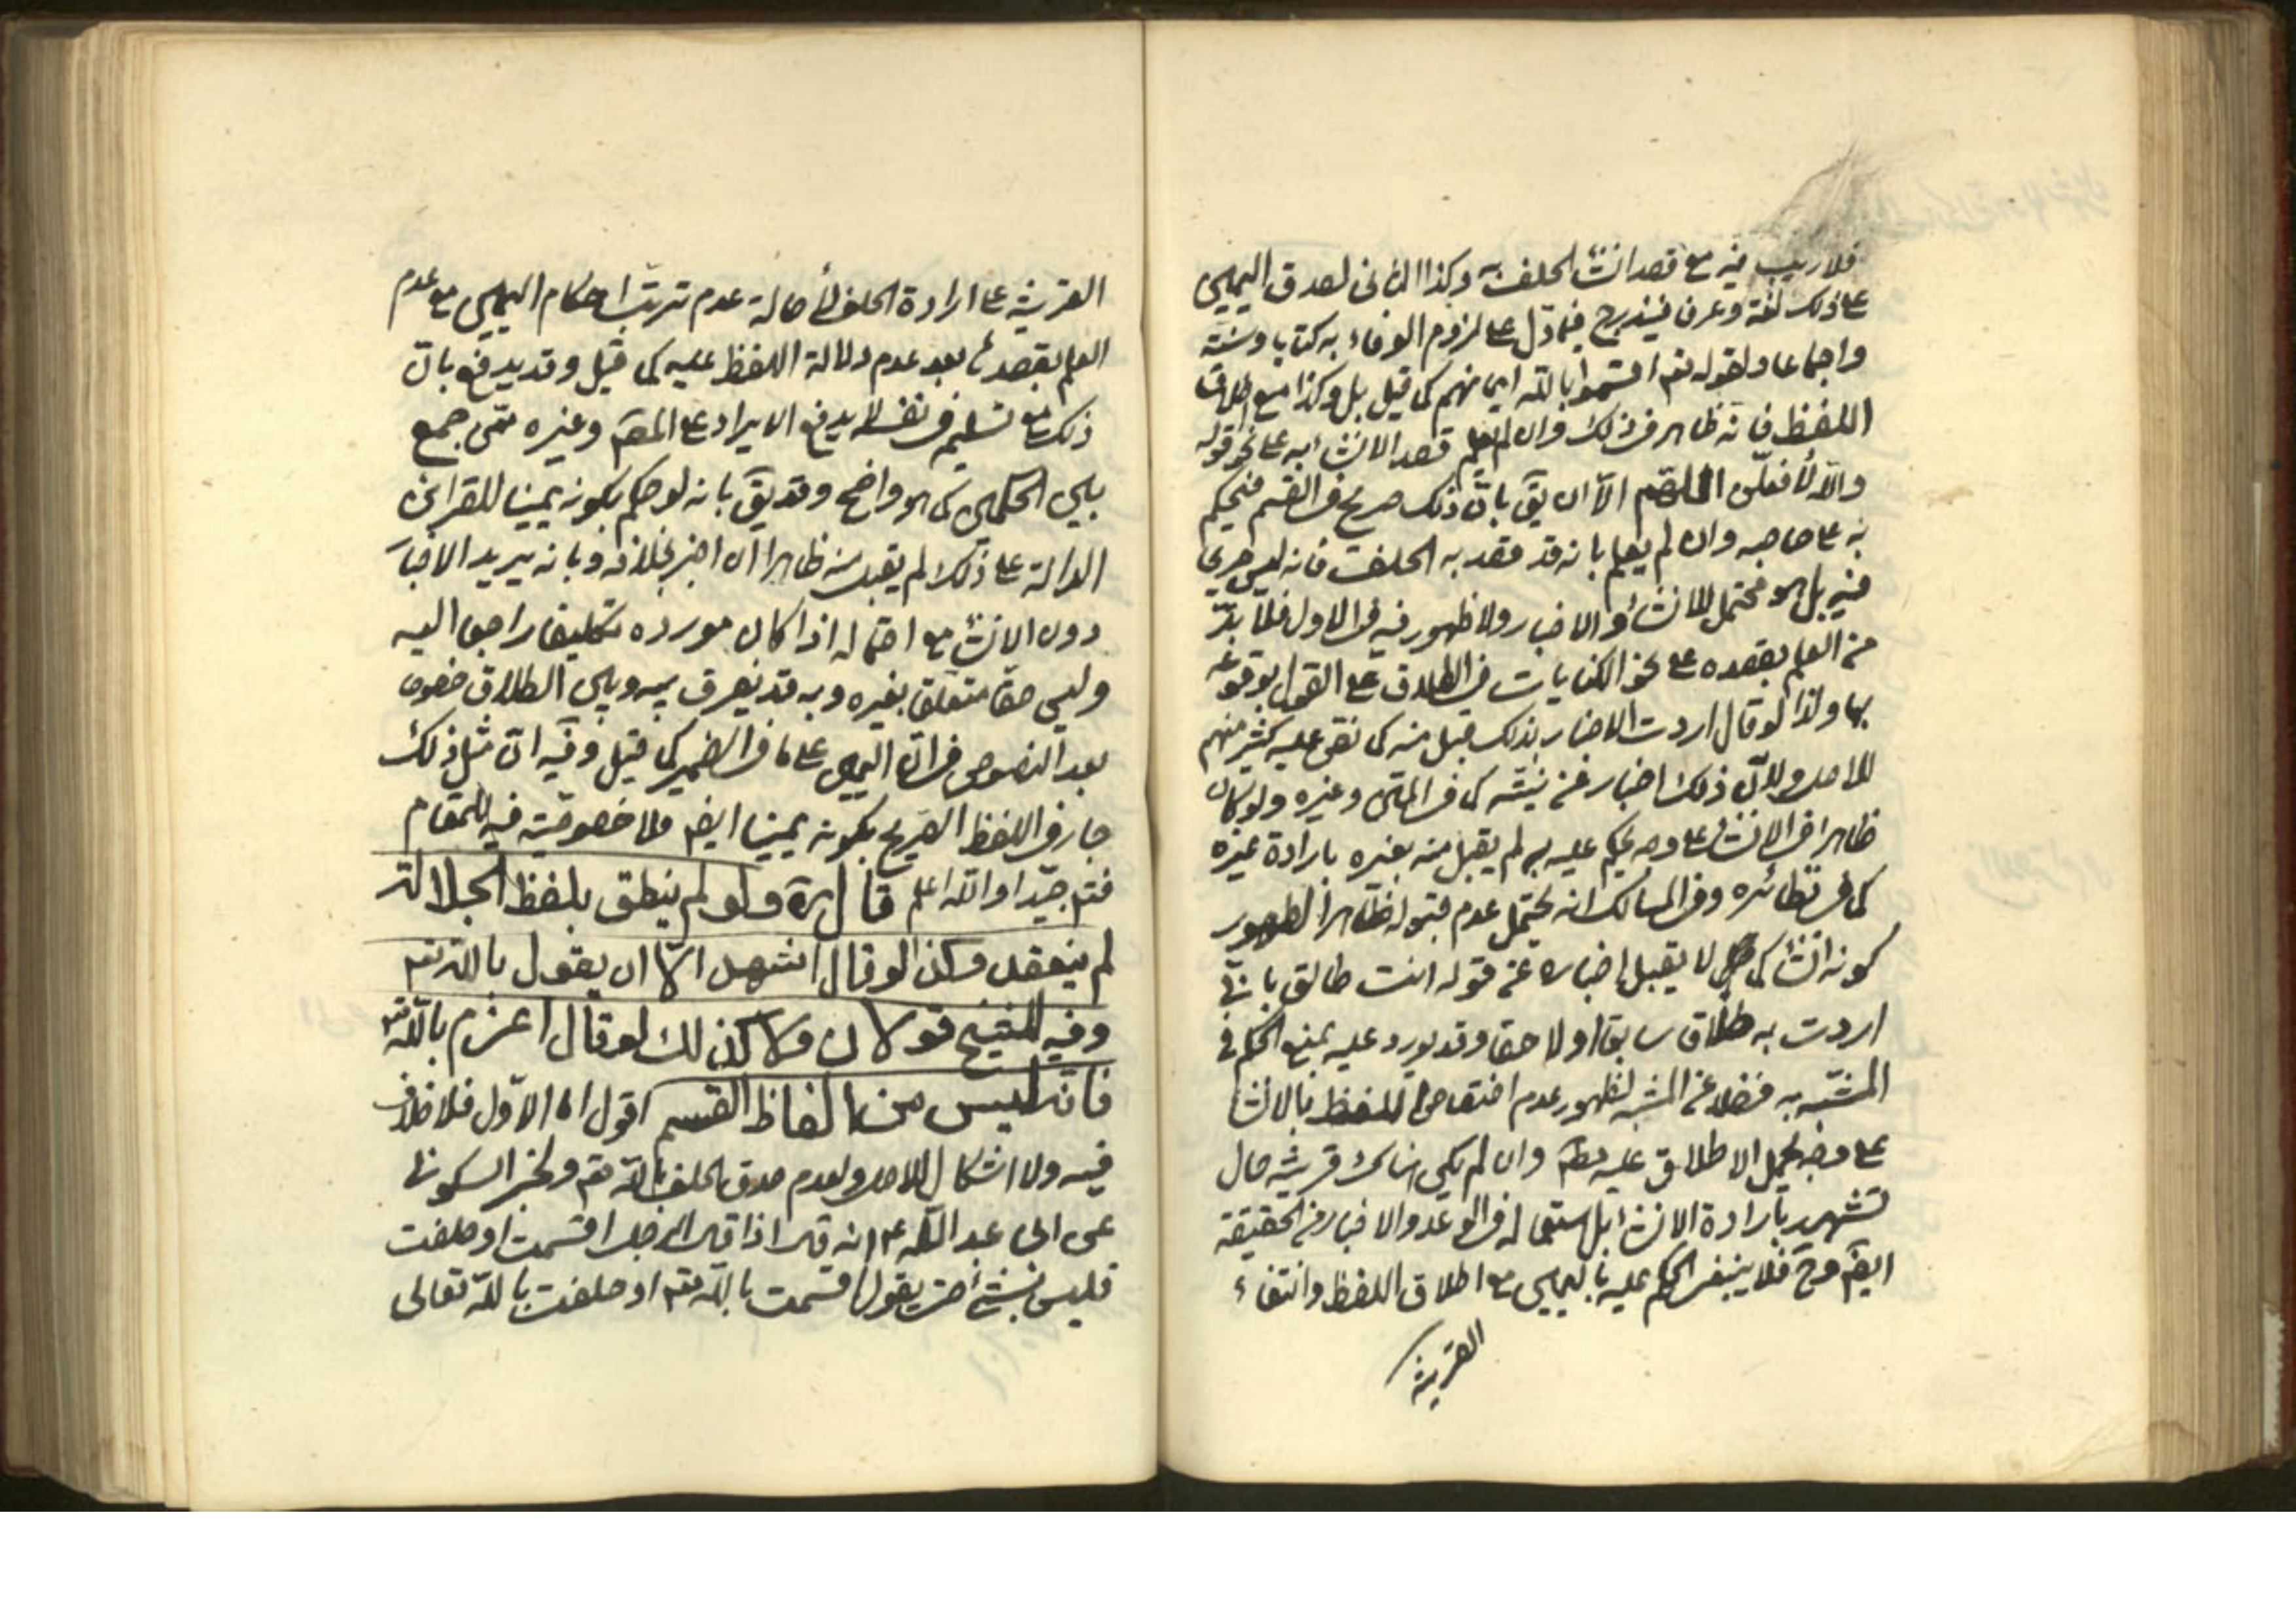 فلا ريب فيه مع قصد انشاء الحلف به وكذا الثانى لصدق اليمين
على ذلك لغة وعرفا فيندرج فيما دل على لزوم الوفاء به كتابا وسنة
واجماعا ولقوله تعم اقسموا بالله ايمانهم كما قيل بل وكذا مع اطلاق
اللفظ فانه ظاهر فى ذلك وان لم يعلم قصد الانشاء به على نحو قوله
والله لأفعلن اللهم الا ان يق بان ذلك صريح فى القسم فيحكم
به على صاحبه وان لم يعلم بانه قد قصد به الحلف فانه ليس صريحا
فيه بل هو محتمل للانشاء والاخبار ولا ظهور فيه فى الاول فلا بد
من العلم بقصده على نحو الكنايات فى الطلاق على القول بوقوعه
بها ولذا لو قال اردت الاخبار بذلك قبل منه كما نص عليه كثير منهم
للاصل ولان ذلك اخبار عن نيته كما فى المتن وغيره ولو كان
ظاهرا فى الانشاء على وجه يحكم عليه به لم يقبل منه بغيره بارادة غيره
كما فى نظائره وفى المسالك انه يحتمل عدم قبوله ظاهرا لظهور
كونه انشاء كما لا يقبل اخباره عن قوله انت طالق بانى
اردت به طلاقا سابقا او لاحقا وقد يورد عليه بمنع الحكم فى
المشبه به فضلا عن المشبه لظهور عدم اختصاص اللفظ بالانشاء
على وجه يحمل الاطلاق عليه مطم وان لم يكن هناك قرينة حال
تشهد بارادة الانشاء بل استعماله فى الوعد والاخبار فى الحقيقة
ايضم وح فلا ينبغى الحكم عليه باليمين مع اطلاق اللفظ وانتفاء
القرينة
القرينة على ارادة الحلف لأصالة عدم ترتب احكام اليمين مع عدم
العلم بقصدها بعد عدم دلالة اللفظ عليه كما قيل وقد يدفع بان
ذلك مع تسليمه فى نفسه لا يدفع الايراد على المصم وغيره ممن جمع
بين الحكمين كما هو واضح وقد يق بانه لو حكم بكونه يمينا للقرائن
الدالة على ذلك لم يقبل منه ظاهرا ان اخبر بخلافه وبانه يريد الاخبار
دون الانشاء مع احتماله اذا كان مورده تكليفا راجعا اليه
وليس حقا متعلقا بغيره وبه قد يفرق بينه وبين الطلاق خصوصا
بعد النصوص فى ان اليمين على ما فى الضمير كما قيل وفيه ان مثل ذلك
جار فى اللفظ الصريح بكونه يمينا ايضم ولا خصوصية فيه للمقام
فتم جيدا والله اعلم قال ره ولو لم ينطق بلفظ الجلالة
لم ينعقد وكذا لو قال اشهد الا ان يقول بالله تعم
وفيه للشيخ قولان ولا كذلك لو قال اعزم بالله تعم
فانه ليس من الفاظ القسم اقول اما الاول فلا خلاف
فيه ولا اشكال للاصل ولعدم صدق الحلف بالله تعم ولخبر السكونى
عن ابى عبد الله ع انه قال اذا قال الرجل اقسمت او حلفت
فليس بشئ حتى يقول اقسمت بالله تعم او حلفت بالله تعالى